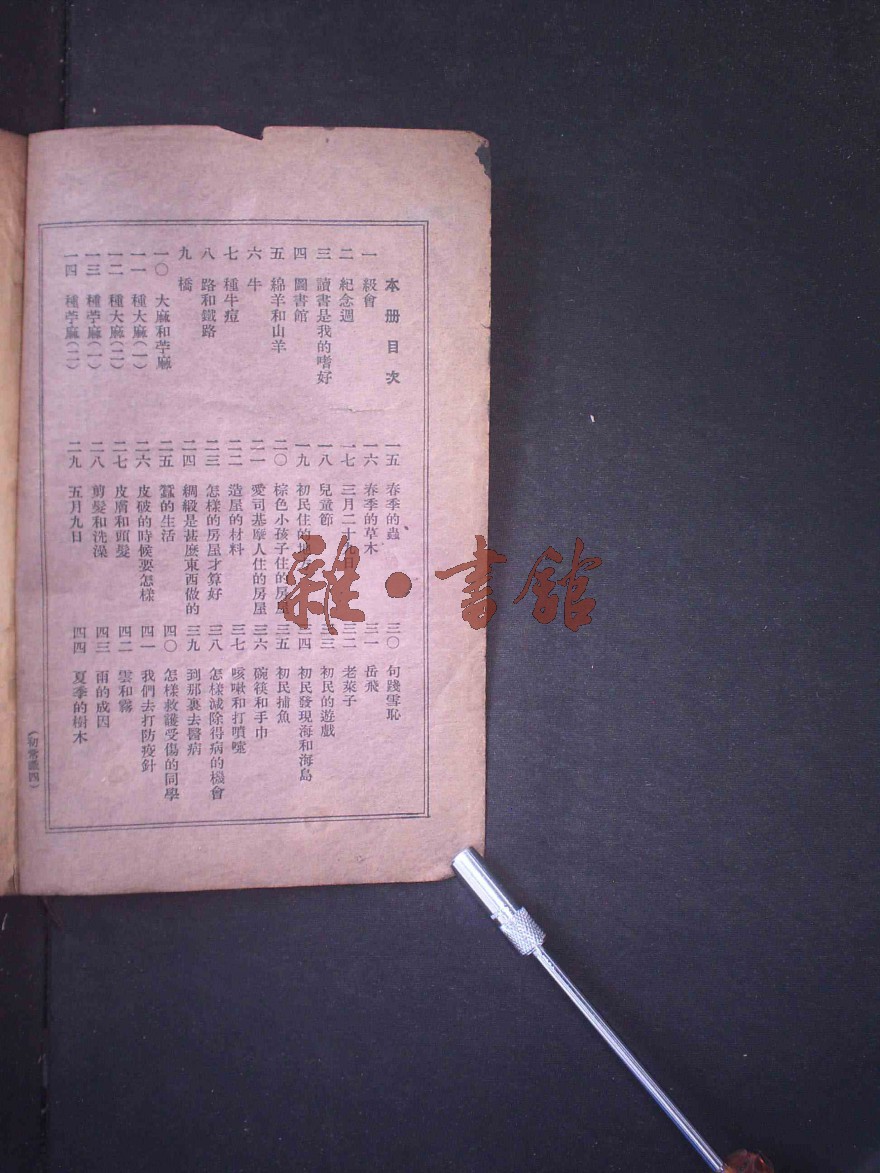 本冊目次
一 級會
二 紀念週
三 讀書是我的嗜好
四 圖書館
五 綿羊和山羊
六 牛
七 種牛痘
八 路和鐵路
九 橋
一〇 大麻和苧麻
一一 種大麻(一)
一二 種大麻(二)
一三 種苧麻(一)
一四 種苧麻(二)
一五 春季的蟲
一六 春季的草木
一七 三月二十九日
一八 兒童節
一九 初民住的地方
二〇 棕色小孩子住的房屋
二一 愛司基摩人住的房屋
二二 造屋的材料
二三 怎樣的房屋才算好
二四 綢緞是甚麼東西做的
二五 蠶的生活
二六 皮破的時候要怎樣
二七 皮膚和頭髮
二八 剪髮和洗澡
二九 五月九日
三〇 句踐雪恥
三一 岳飛
三二 老萊子
三三 初民的遊戲
三四 初民發現海和海島
三五 初民捕魚
三六 碗筷和手巾
三七 咳嗽和打噴嚏
三八 怎樣減除得病的機會
三九 到那裏去醫病
四〇 怎樣救護受傷的同學
四一 我們去打防疫針
四二 雲和霧
四三 雨的成因
四四 夏季的樹木
(初常識四)
雜·書館